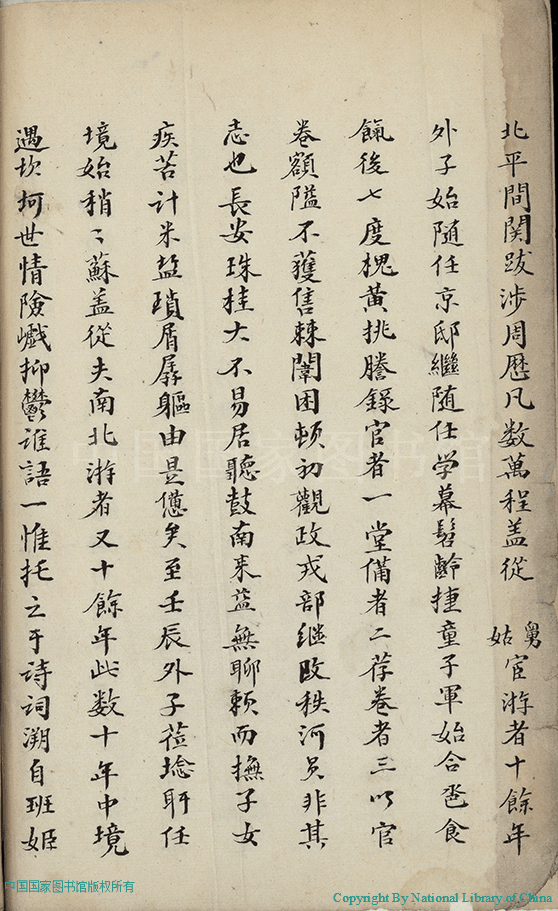 北平間関跋涉周歷凡数萬程盖從舅姑宦游者十餘年
外子始隨任京邸繼隨任学幕髫齡捷童子軍始合巹食
餼後七度槐黃挑謄錄官者一堂備者二荐卷者三以官
卷額隘不獲售棘闈困頓初觀政戎部继改秩河員非其
志也長安珠桂大不易居聽鼓南来益無聊頼而撫子女
疾苦計米盐瑣屑孱軀由是憊矣至壬辰外子蒞埝盱任
境始稍〻蘇盖從夫南北游者又十餘年此数十年中境
遇坎坷世情險巇抑鬱誰語一惟托之于诗词溯自班姬
中国国家图书馆
中国国家图书馆版权所有
Copyright By National Library of China